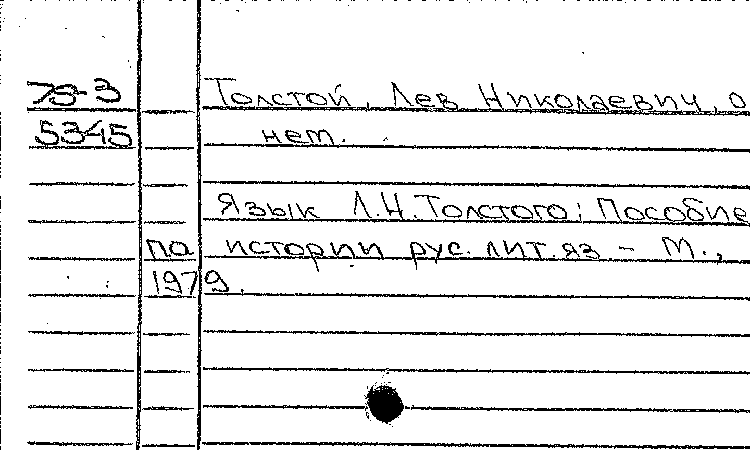 79-3 Толстой, Лев Николаевич, о
5345 нет.
Язык Л.Н.Толстого: Пособие
по истории рус. лит. яз - М.,
1979.